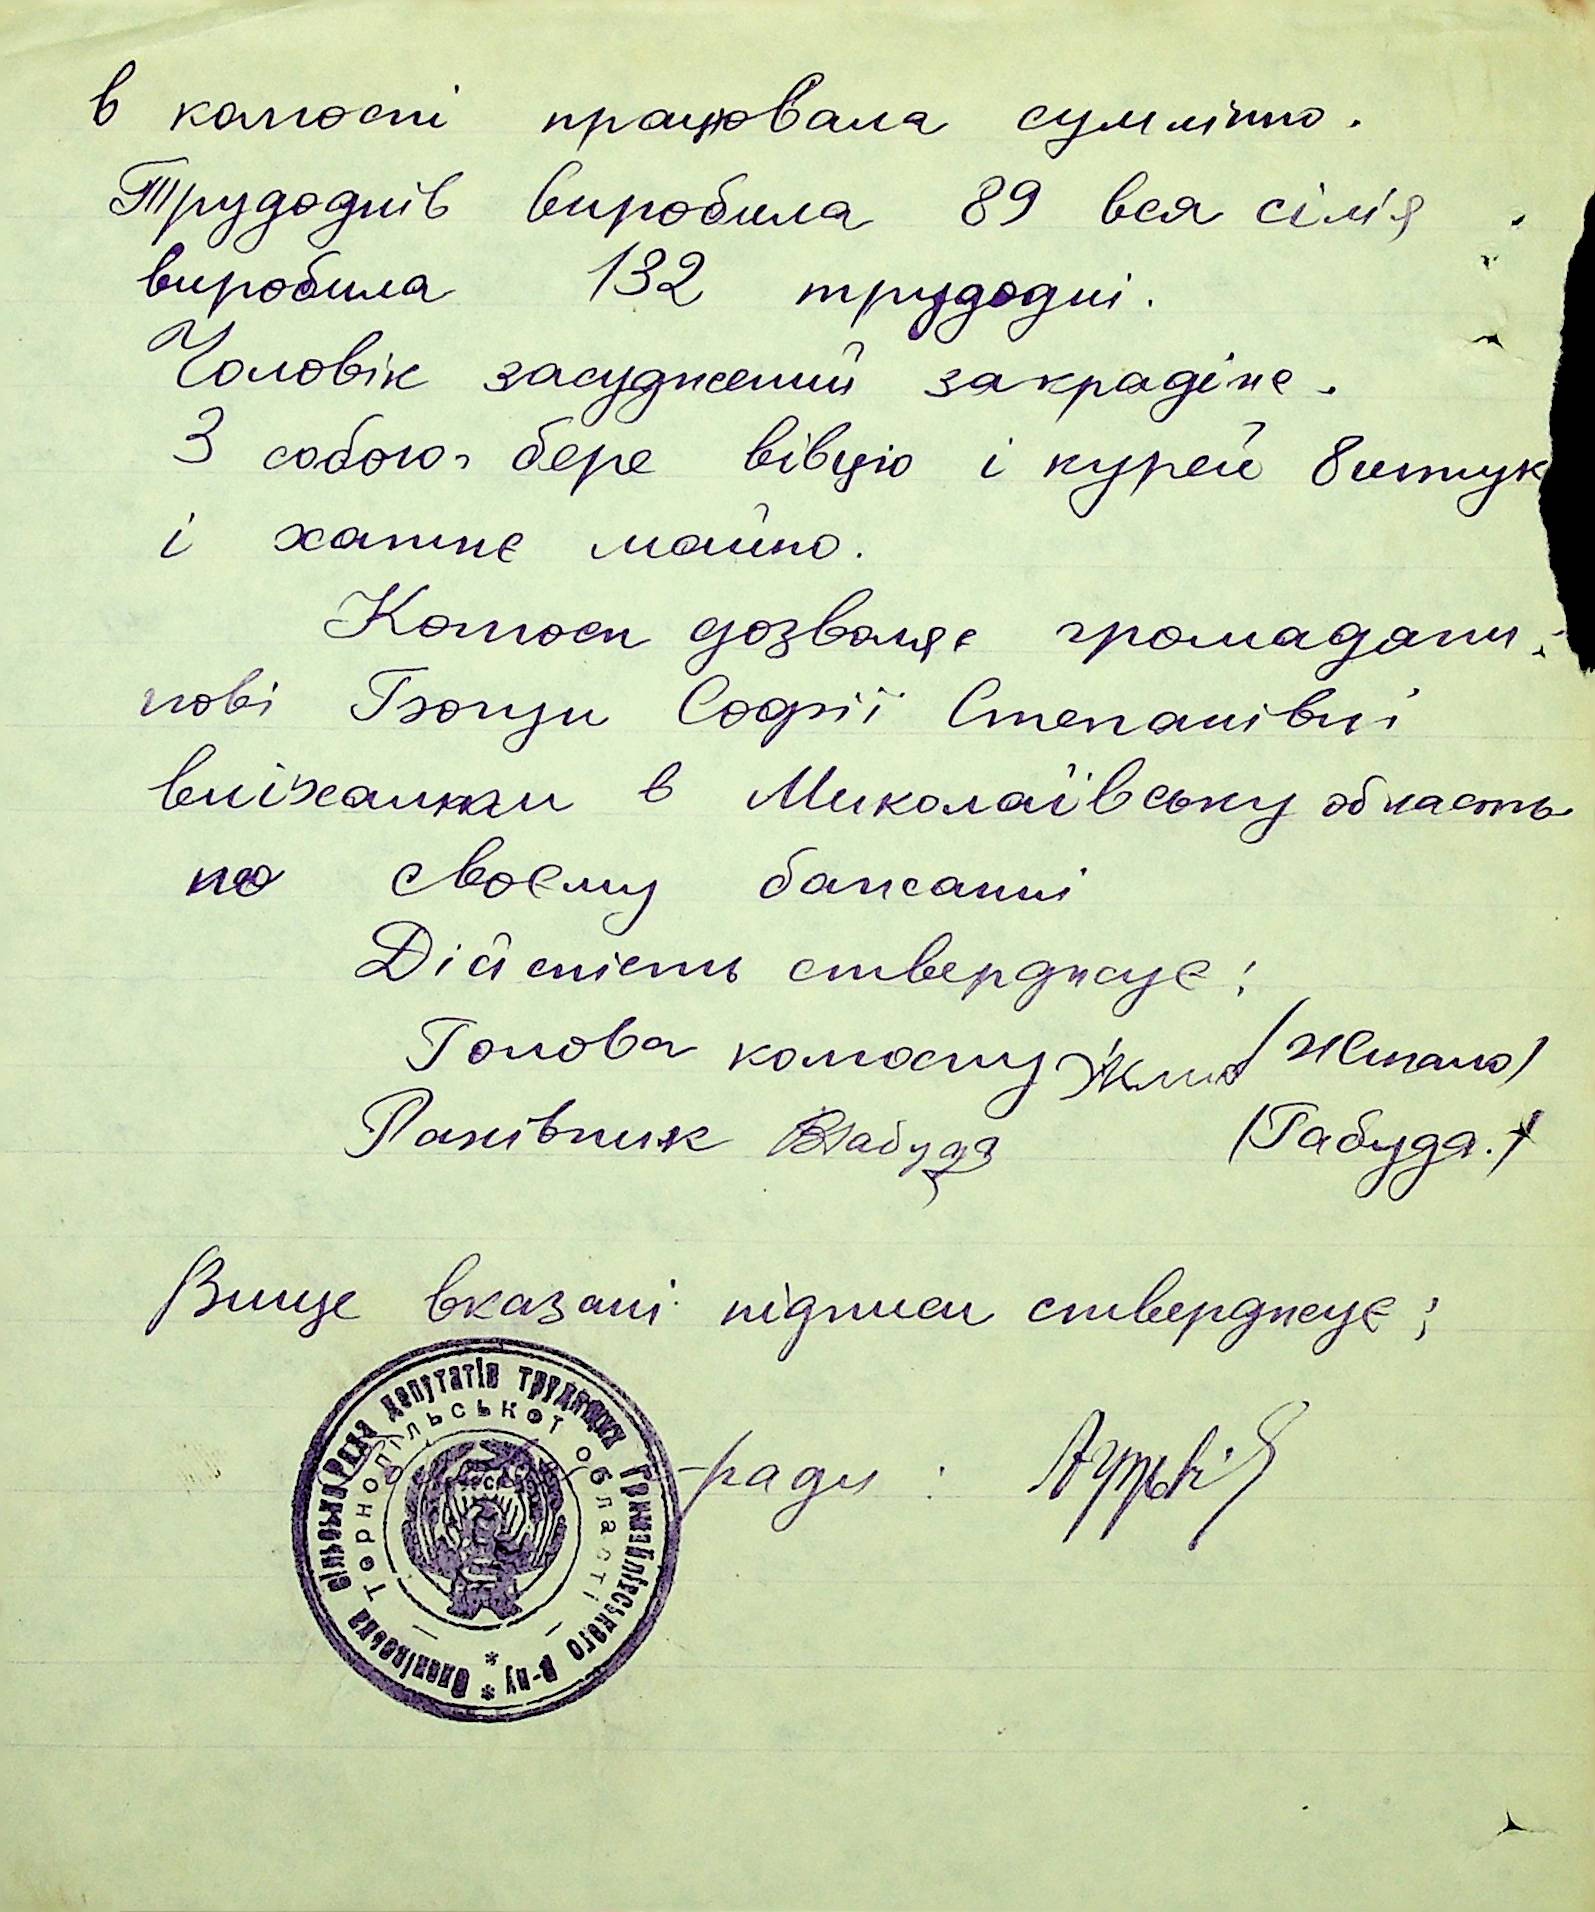 в колгоспі працювала сумлінно.
Трудоднів виробила 89 вся сім'я
виробила 132 трудодні.
Чоловік засуджений закрадіже.
З собою бере вівцю і курей 8 штук
і хатнє майно.
Колгосп дозволяє громадяни
нові Софії Степанівні
виїхати в Миколаївську область
по своєму бажанні
Дійсність стверджує:
Голова колгоспу
Ланівник Габуда (Габуда.)
Вище вказані підписи стверджує:
ради:
сільська Рада депутатів трудящих Гримайлівського р-ну
Тернопільської області
УРСР